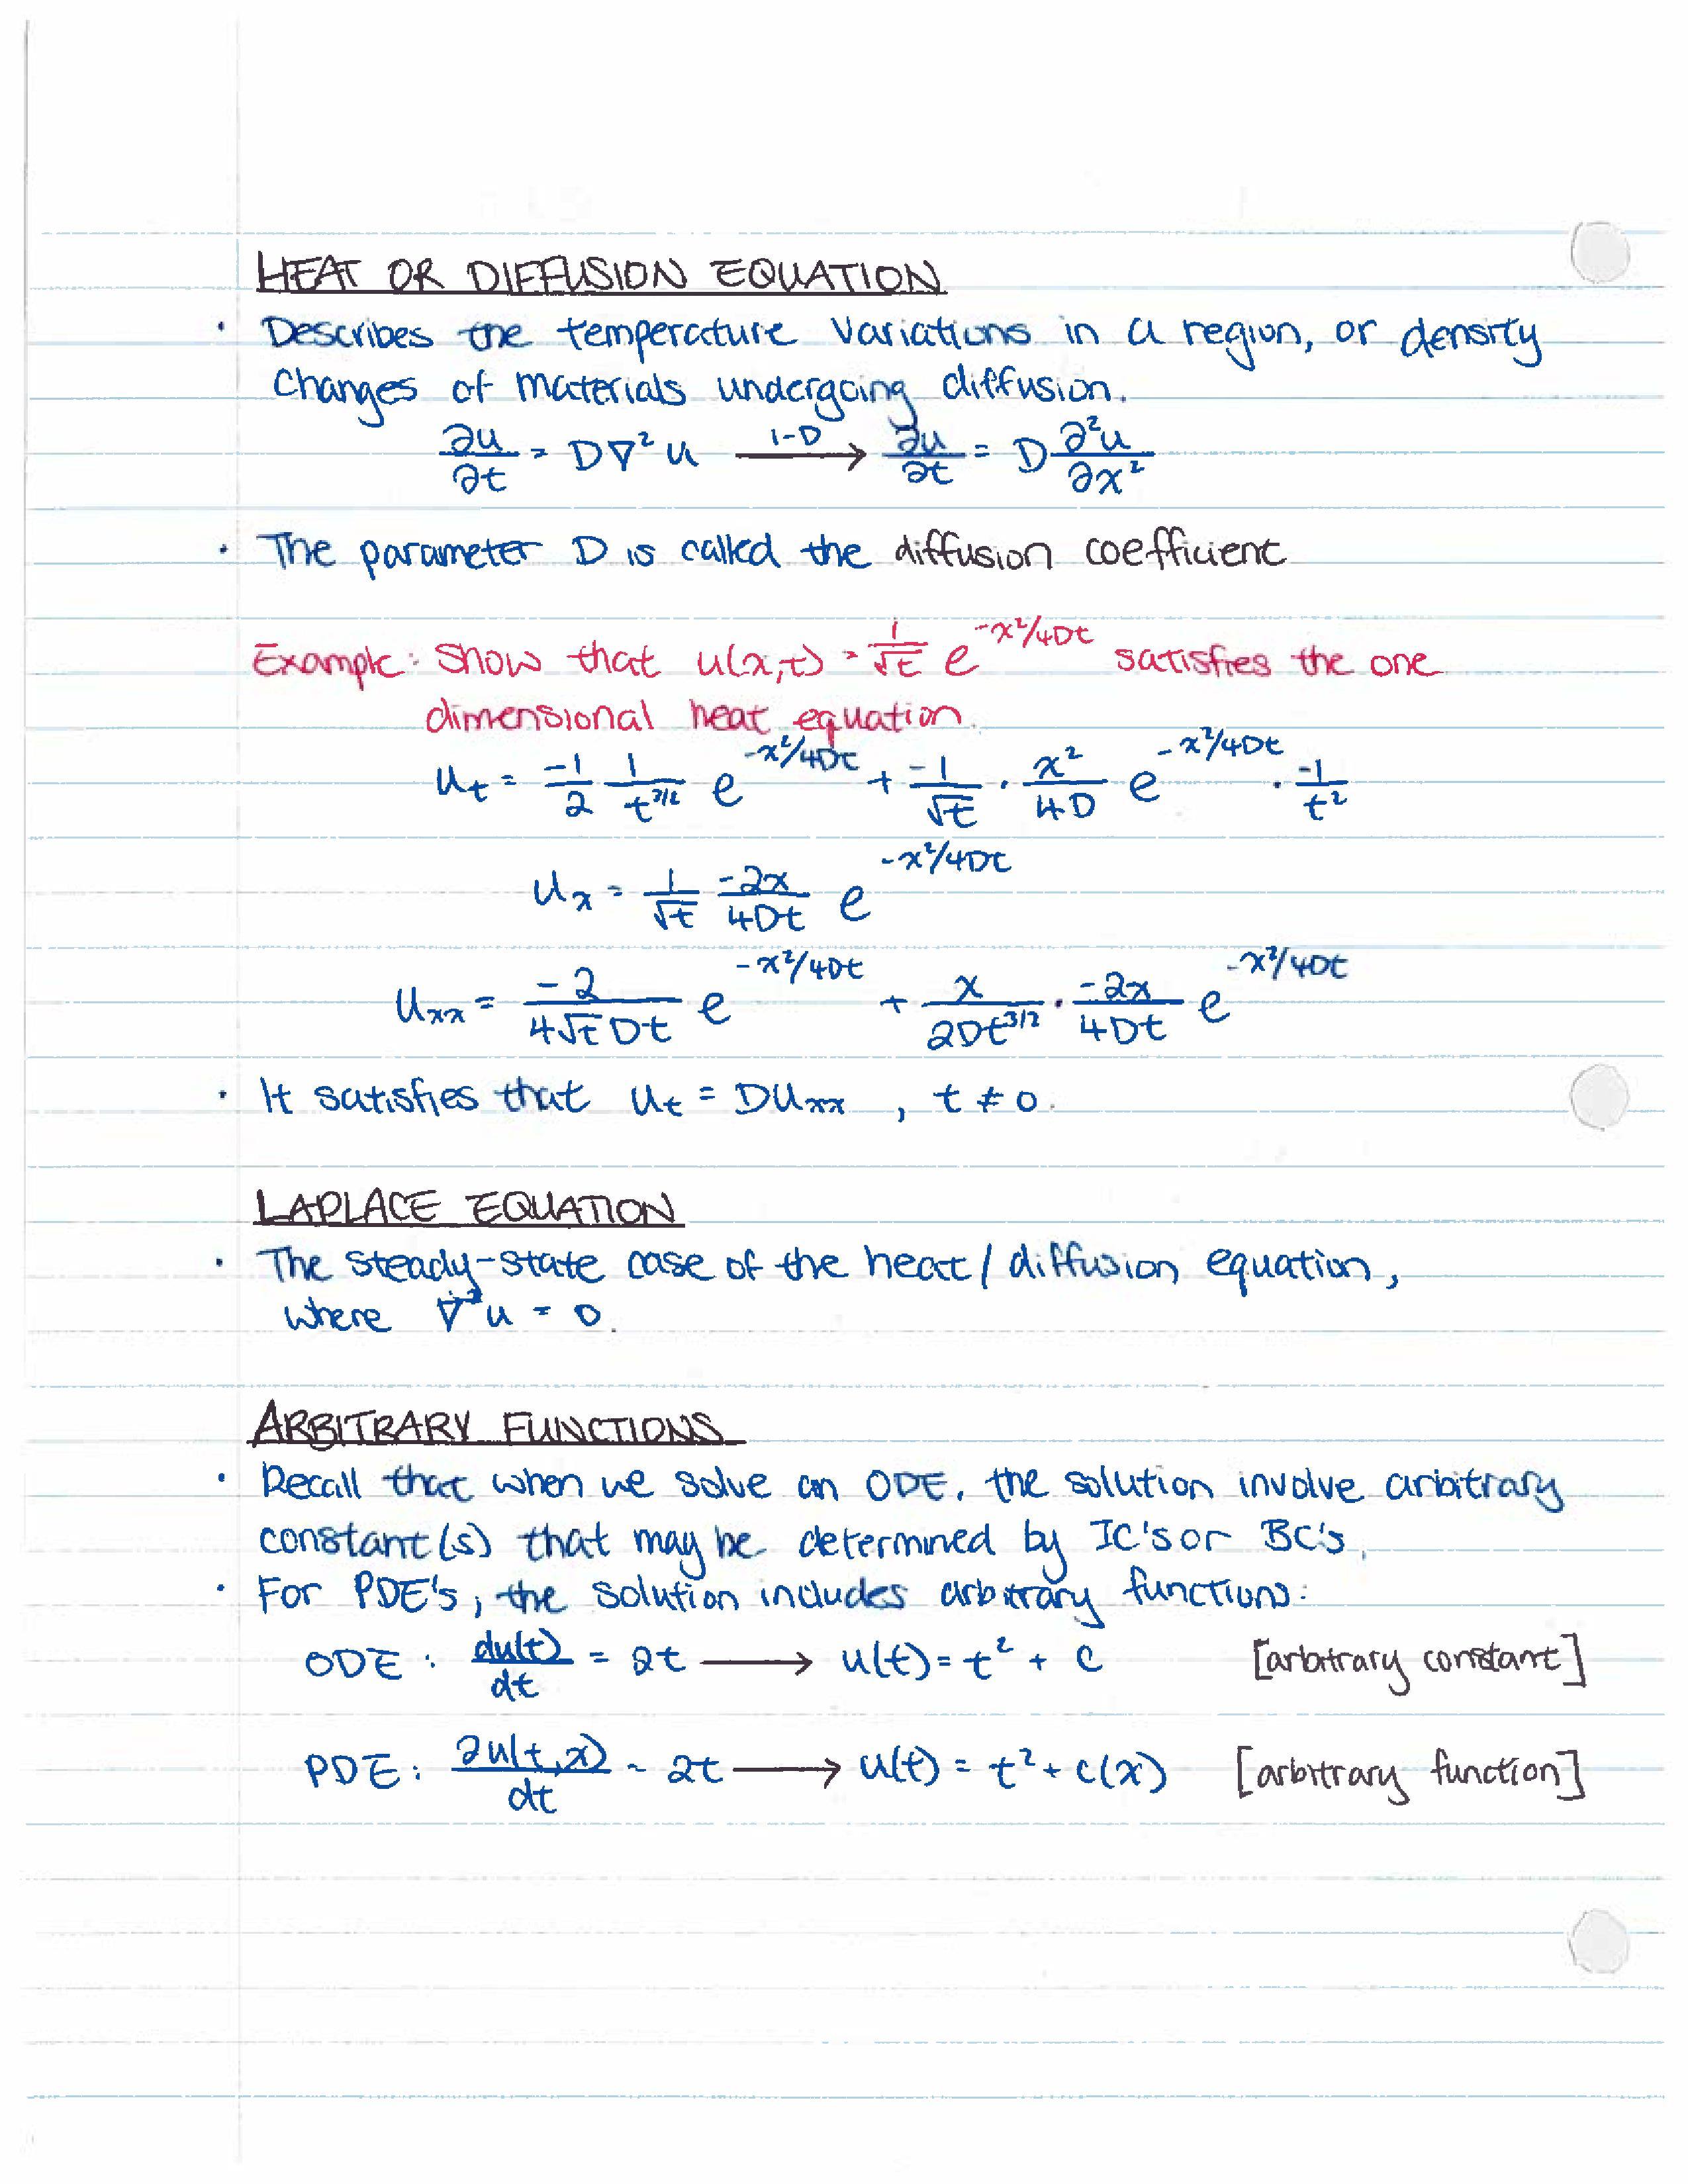 HEAT OR DIFFUSION EQUATION
· Describes the temperature variations in a region, or density
changes of materials undergoing diffusion.
∂u/∂t = D∇²u —1-D→ ∂u/∂t = D ∂²u/∂x²
· The parameter D is called the diffusion coefficient
Example: Show that u(x,t) = 1/√t e^(-x²/4Dt) satisfies the one
dimensional heat equation.
u_t = -1/2 1/t^(3/2) e^(-x²/4Dt) + -1/√t · x²/4D e^(-x²/4Dt) · -1/t²
u_x = 1/√t -2x/4Dt e^(-x²/4Dt)
u_xx = -2/(4√t Dt) e^(-x²/4Dt) + x/(2Dt^(3/2)) · -2x/4Dt e^(-x²/4Dt)
· It satisfies that u_t = Du_xx , t ≠ 0.
LAPLACE EQUATION
· The steady-state case of the heat/diffusion equation,
where ∇²u = 0.
ARBITRARY FUNCTIONS
· Recall that when we solve an ODE, the solution involve arbitrary
constant(s) that may be determined by IC's or BC's.
· For PDE's, the solution includes arbitrary functions:
ODE: du(t)/dt = 2t ⟶ u(t) = t² + c [arbitrary constant]
PDE: ∂u(t,x)/dt = 2t ⟶ u(t) = t² + c(x) [arbitrary function]